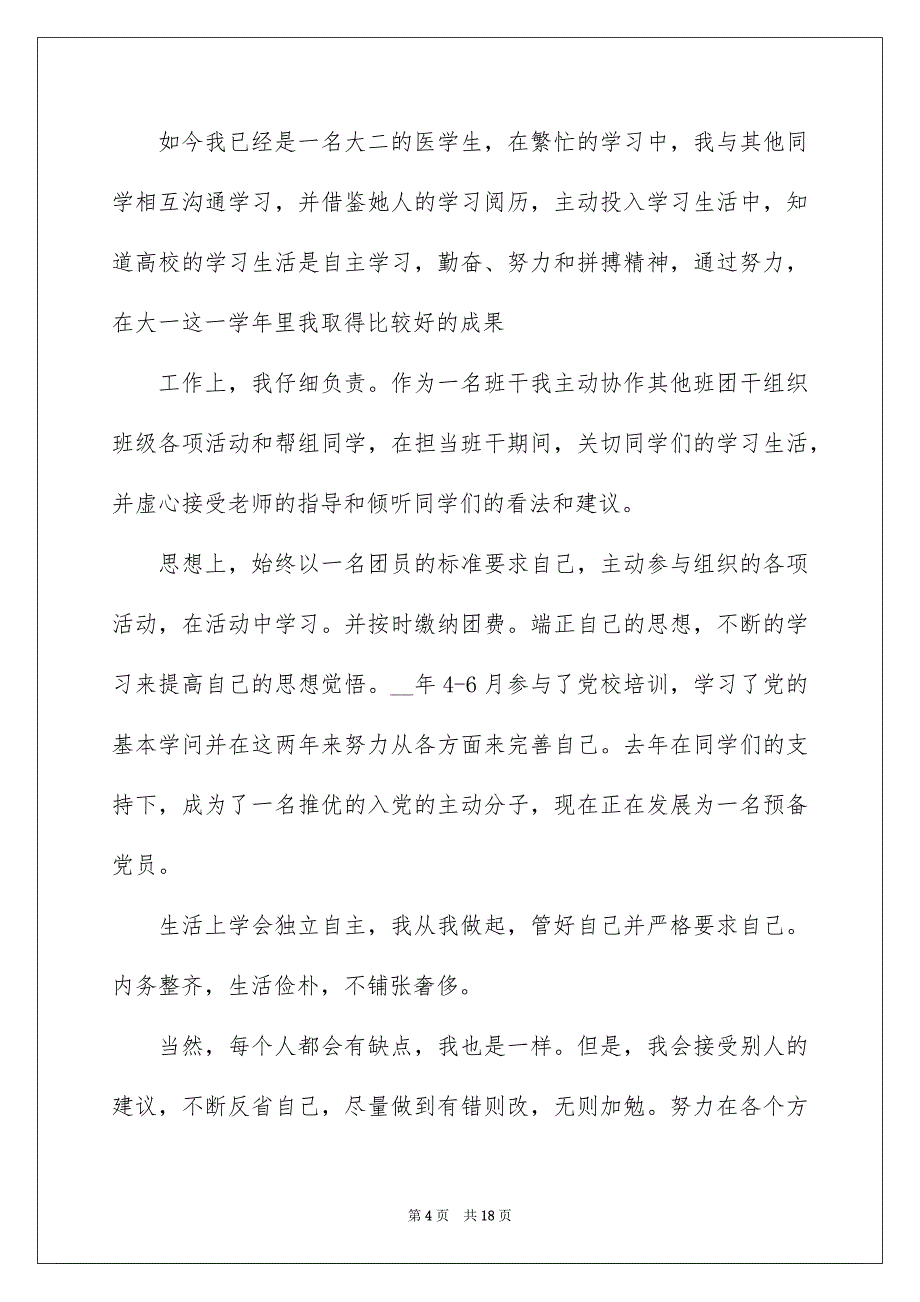 如今我已经是一名大二的医学生，在繁忙的学习中，我与其他同
学相互沟通学习，并借鉴她人的学习阅历，主动投入学习生活中，知
道高校的学习生活是自主学习，勤奋、努力和拼搏精神，通过努力，
在大一这一学年里我取得比较好的成果
工作上，我仔细负责。作为一名班干我主动协作其他班团干组织
班级各项活动和帮组同学，在担当班干期间，关切同学们的学习生活，
并虚心接受老师的指导和倾听同学们的看法和建议。
思想上，始终以一名团员的标准要求自己，主动参与组织的各项
活动，在活动中学习。并按时缴纳团费。端正自己的思想，不断的学
习来提高自己的思想觉悟。__年 4-6 月参与了党校培训，学习了党的
基本学问并在这两年来努力从各方面来完善自己。去年在同学们的支
持下，成为了一名推优的入党的主动分子，现在正在发展为一名预备
党员。
生活上学会独立自主，我从我做起，管好自己并严格要求自己。
内务整齐，生活俭朴，不铺张奢侈。
当然，每个人都会有缺点，我也是一样。但是，我会接受别人的
建议，不断反省自己，尽量做到有错则改，无则加勉。努力在各个方
第 4 页 共 18 页